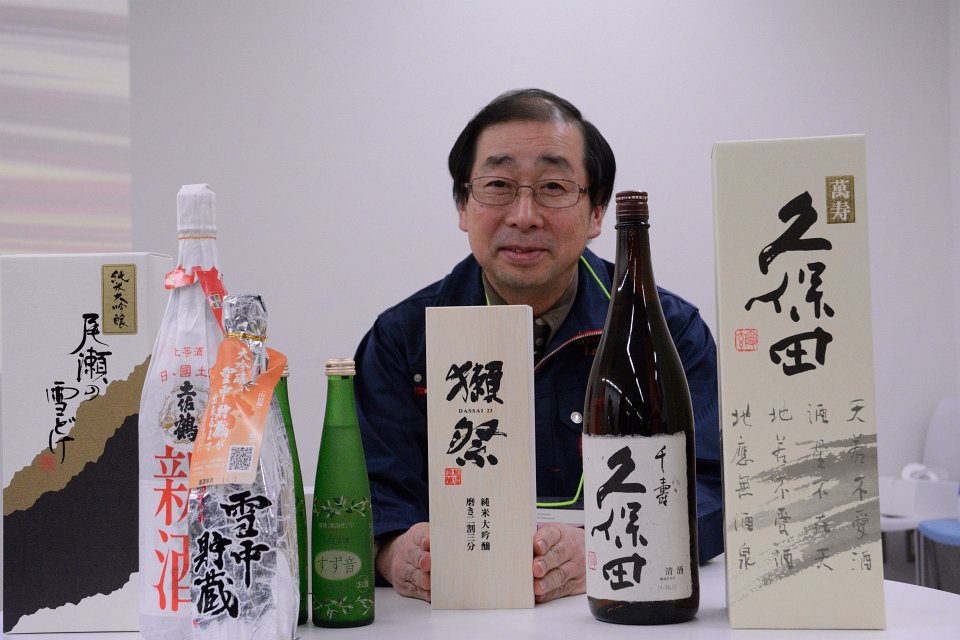 純米大吟醸
尾瀬の
雪どけ
上等酒
土佐鶴
新酒
大吟醸
雪中貯蔵
雪中
貯蔵
すず音
獺祭
DASSAI 23
純米大吟醸
磨き二割三分
千壽
久保田
清酒
萬寿
久保田
天若不愛酒
酒星不在天
地若不愛酒
地應無酒泉